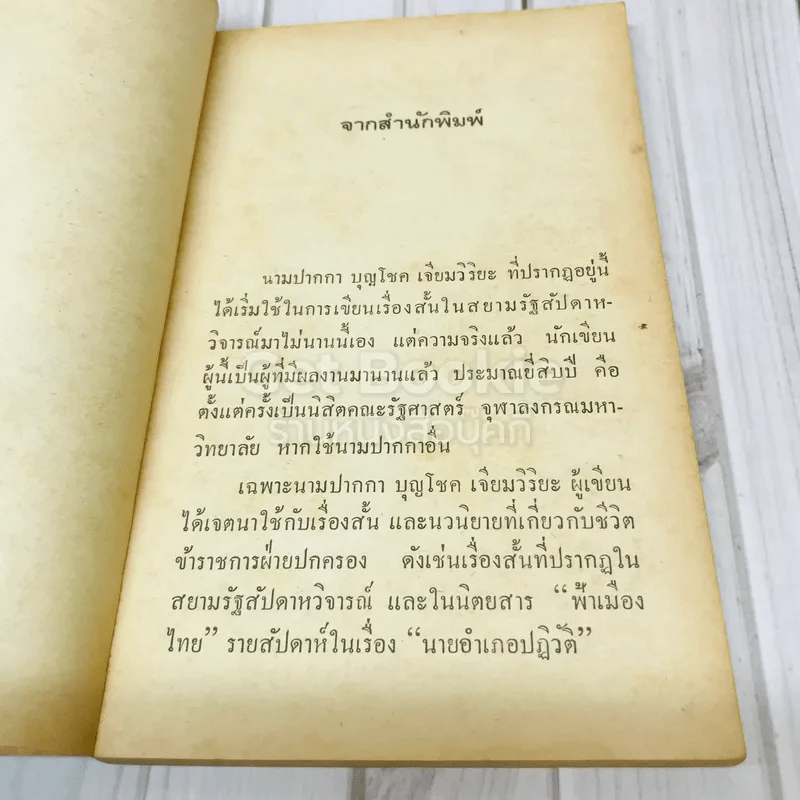 จากสำนักพิมพ์
นามปากกา บุญโชค เจียมวิริยะ ที่ปรากฏอยู่นี้
ได้เริ่มใช้ในการเขียนเรื่องสั้นในสยามรัฐสัปดาห-
วิจารณ์มาไม่นานนี้เอง แต่ความจริงแล้ว นักเขียน
ผู้นี้เป็นผู้ที่มีผลงานมานานแล้ว ประมาณยี่สิบปี คือ
ตั้งแต่ครั้งเป็นนิสิตคณะรัฐศาสตร์ จุฬาลงกรณมหา-
วิทยาลัย หากใช้นามปากกาอื่น
เฉพาะนามปากกา บุญโชค เจียมวิริยะ ผู้เขียน
ได้เจตนาใช้กับเรื่องสั้น และนวนิยายที่เกี่ยวกับชีวิต
ข้าราชการฝ่ายปกครอง ดังเช่นเรื่องสั้นที่ปรากฏใน
สยามรัฐสัปดาหวิจารณ์ และในนิตยสาร “ฟ้าเมือง
ไทย” รายสัปดาห์ในเรื่อง “นายอำเภอปฏิวัติ”